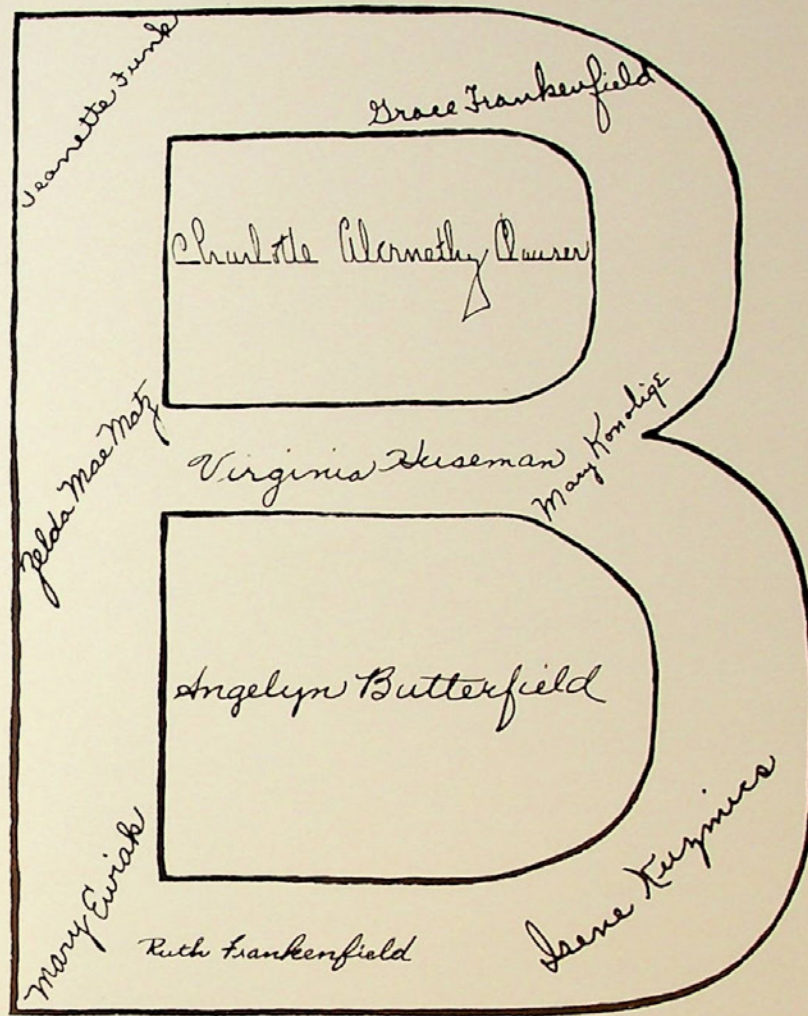 Jeanette Funk
Grace Frankenfield
Charlotte Abernethy Clauser
Zelda Mae Matz
Virginia Huseman
Mary Konolige
Angelyn Butterfield
Irene Kuzmics
Mary Ewiak
Ruth Frankenfield